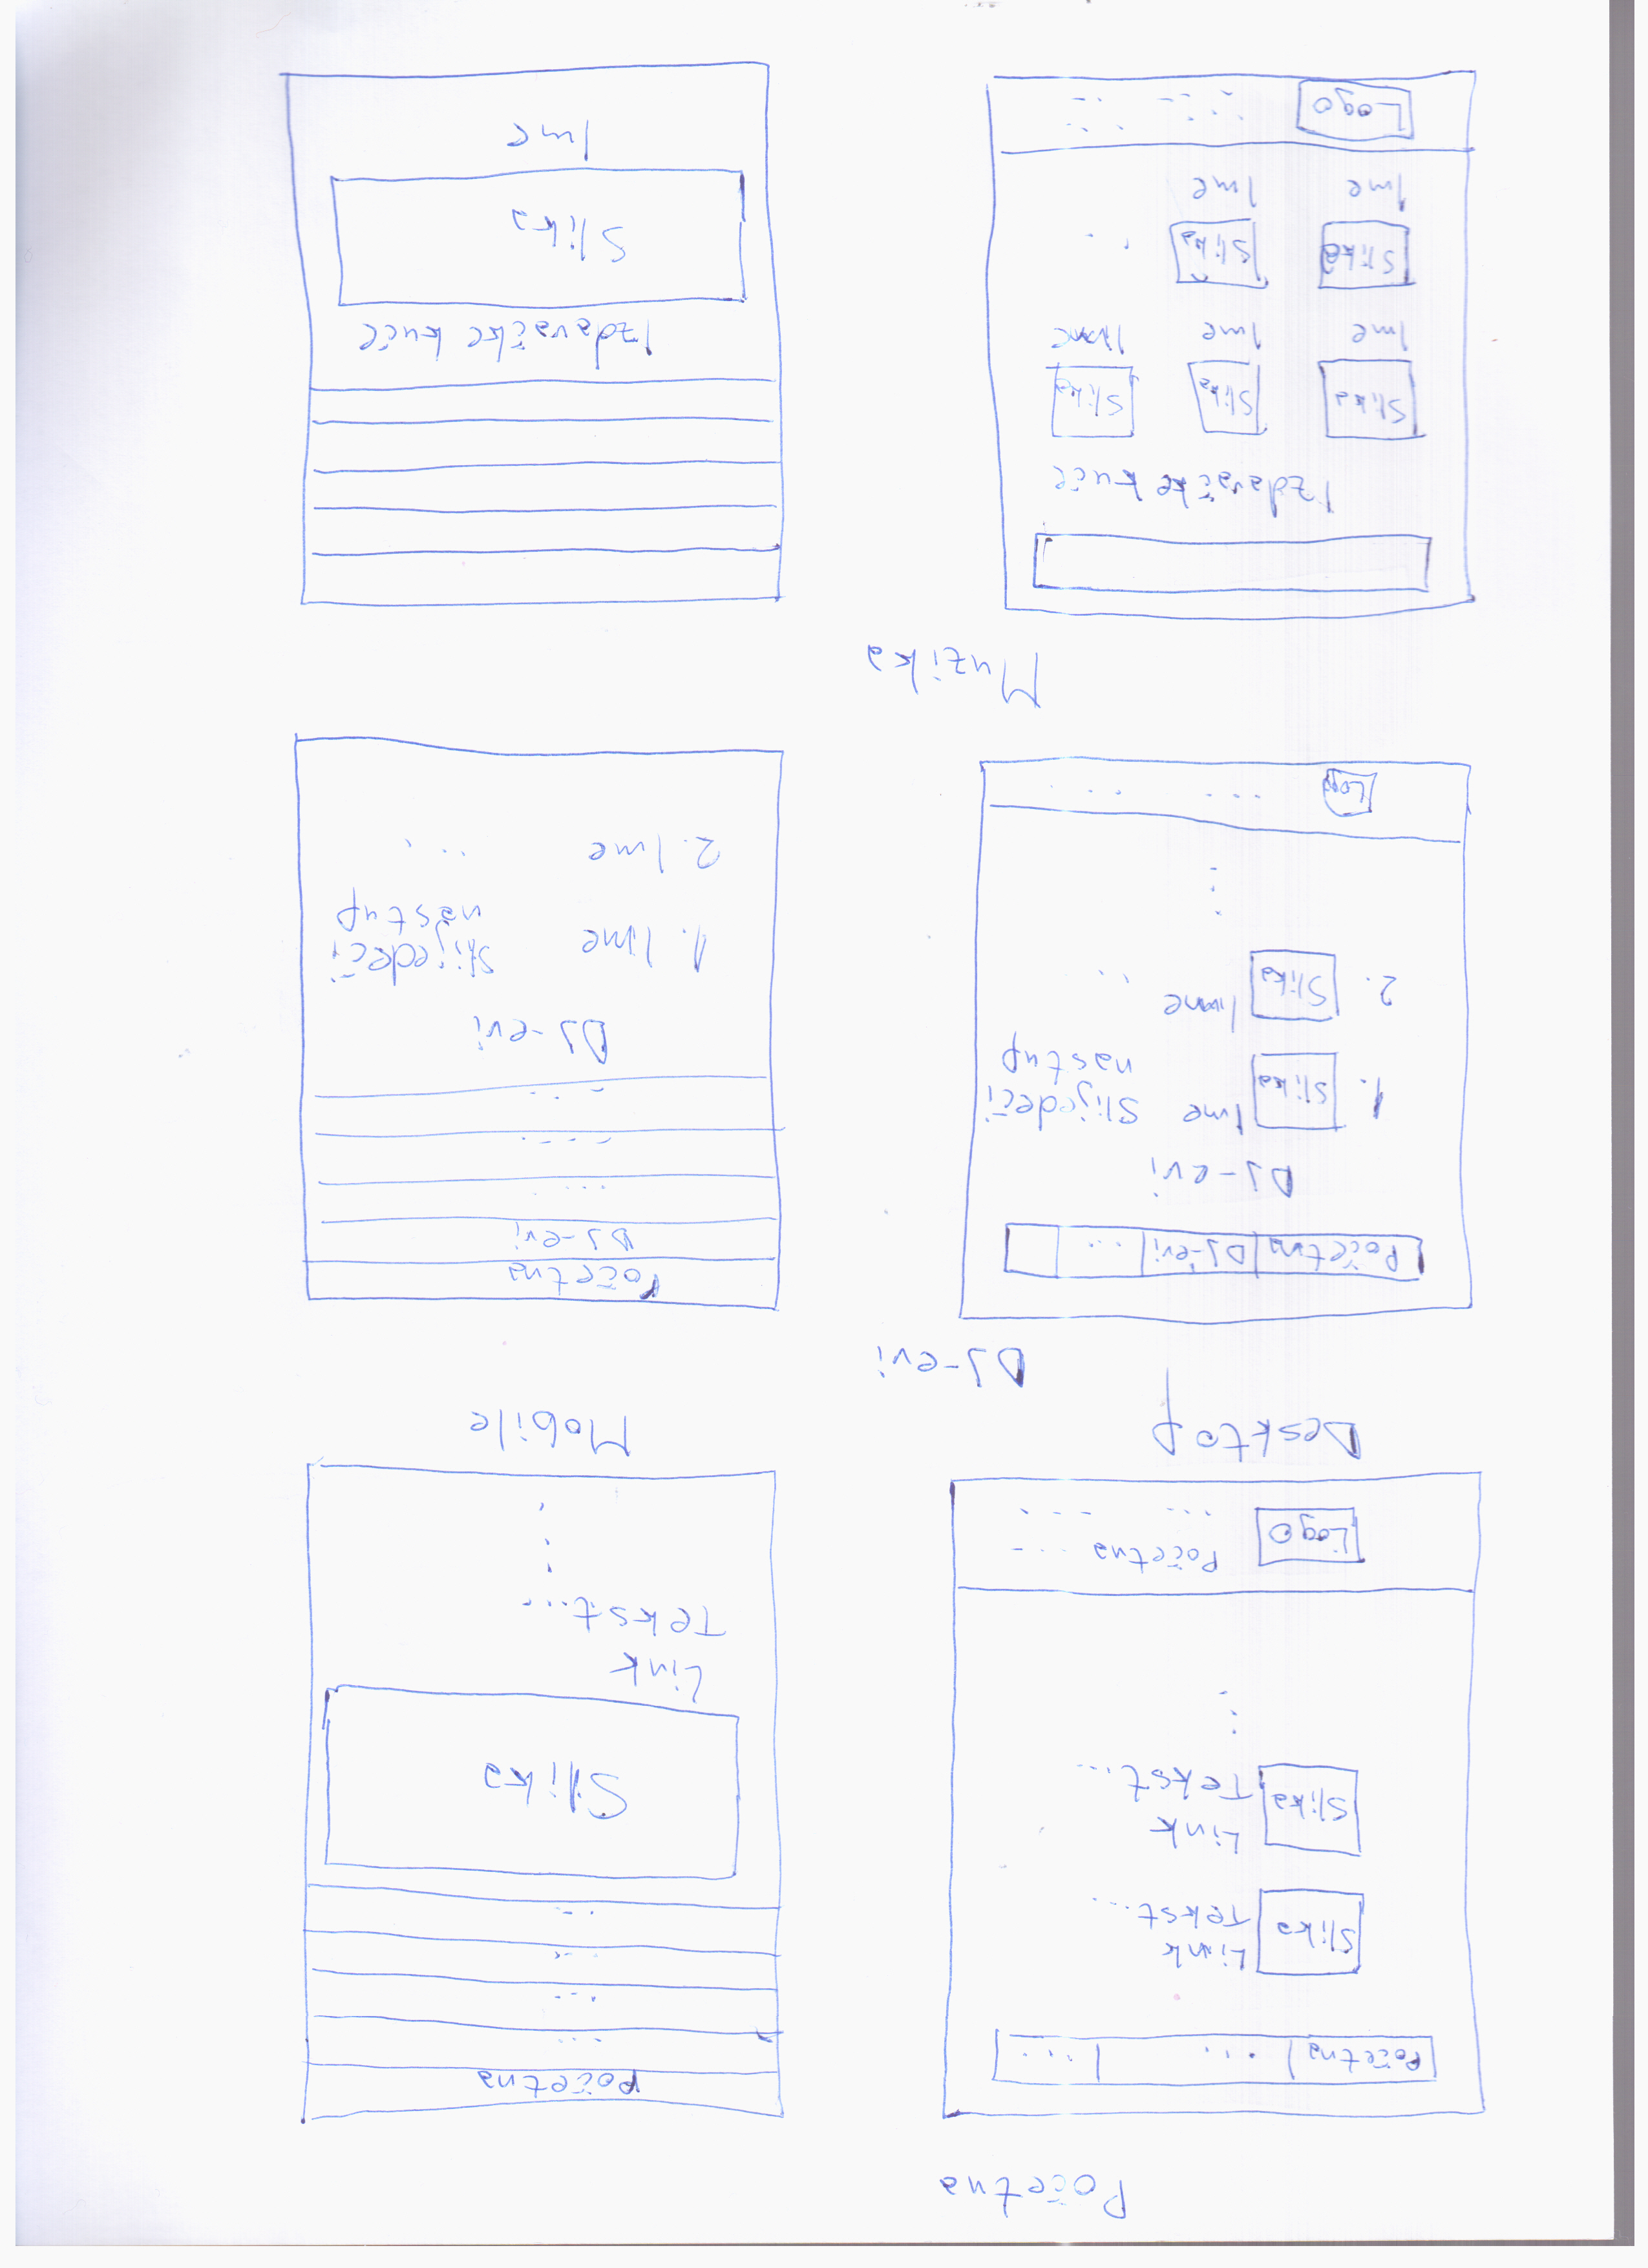 Početna
Početna ... ...
Slika Link
Tekst...
Slika Link
Tekst...
Logo Početna ...
... ...
Desktop
Početna
...
...
...
...
Slika
Link
Tekst...
Mobile
DJ-evi
Početna DJ-evi ...
DJ-evi
1. Slika Ime Slijedeči
nastup
2. Slika Ime ..
Logo ... ...
Početna
DJ-evi
....
....
...
DJ-evi
1. Ime Slijedeči
nastup
2. Ime ...
Muzika
Izdavačke kuče
Slika Slika Slika
Ime Ime Ime
Slika Slika ..
Ime Ime
Logo
Izdavačke kuče
Slika
Ime